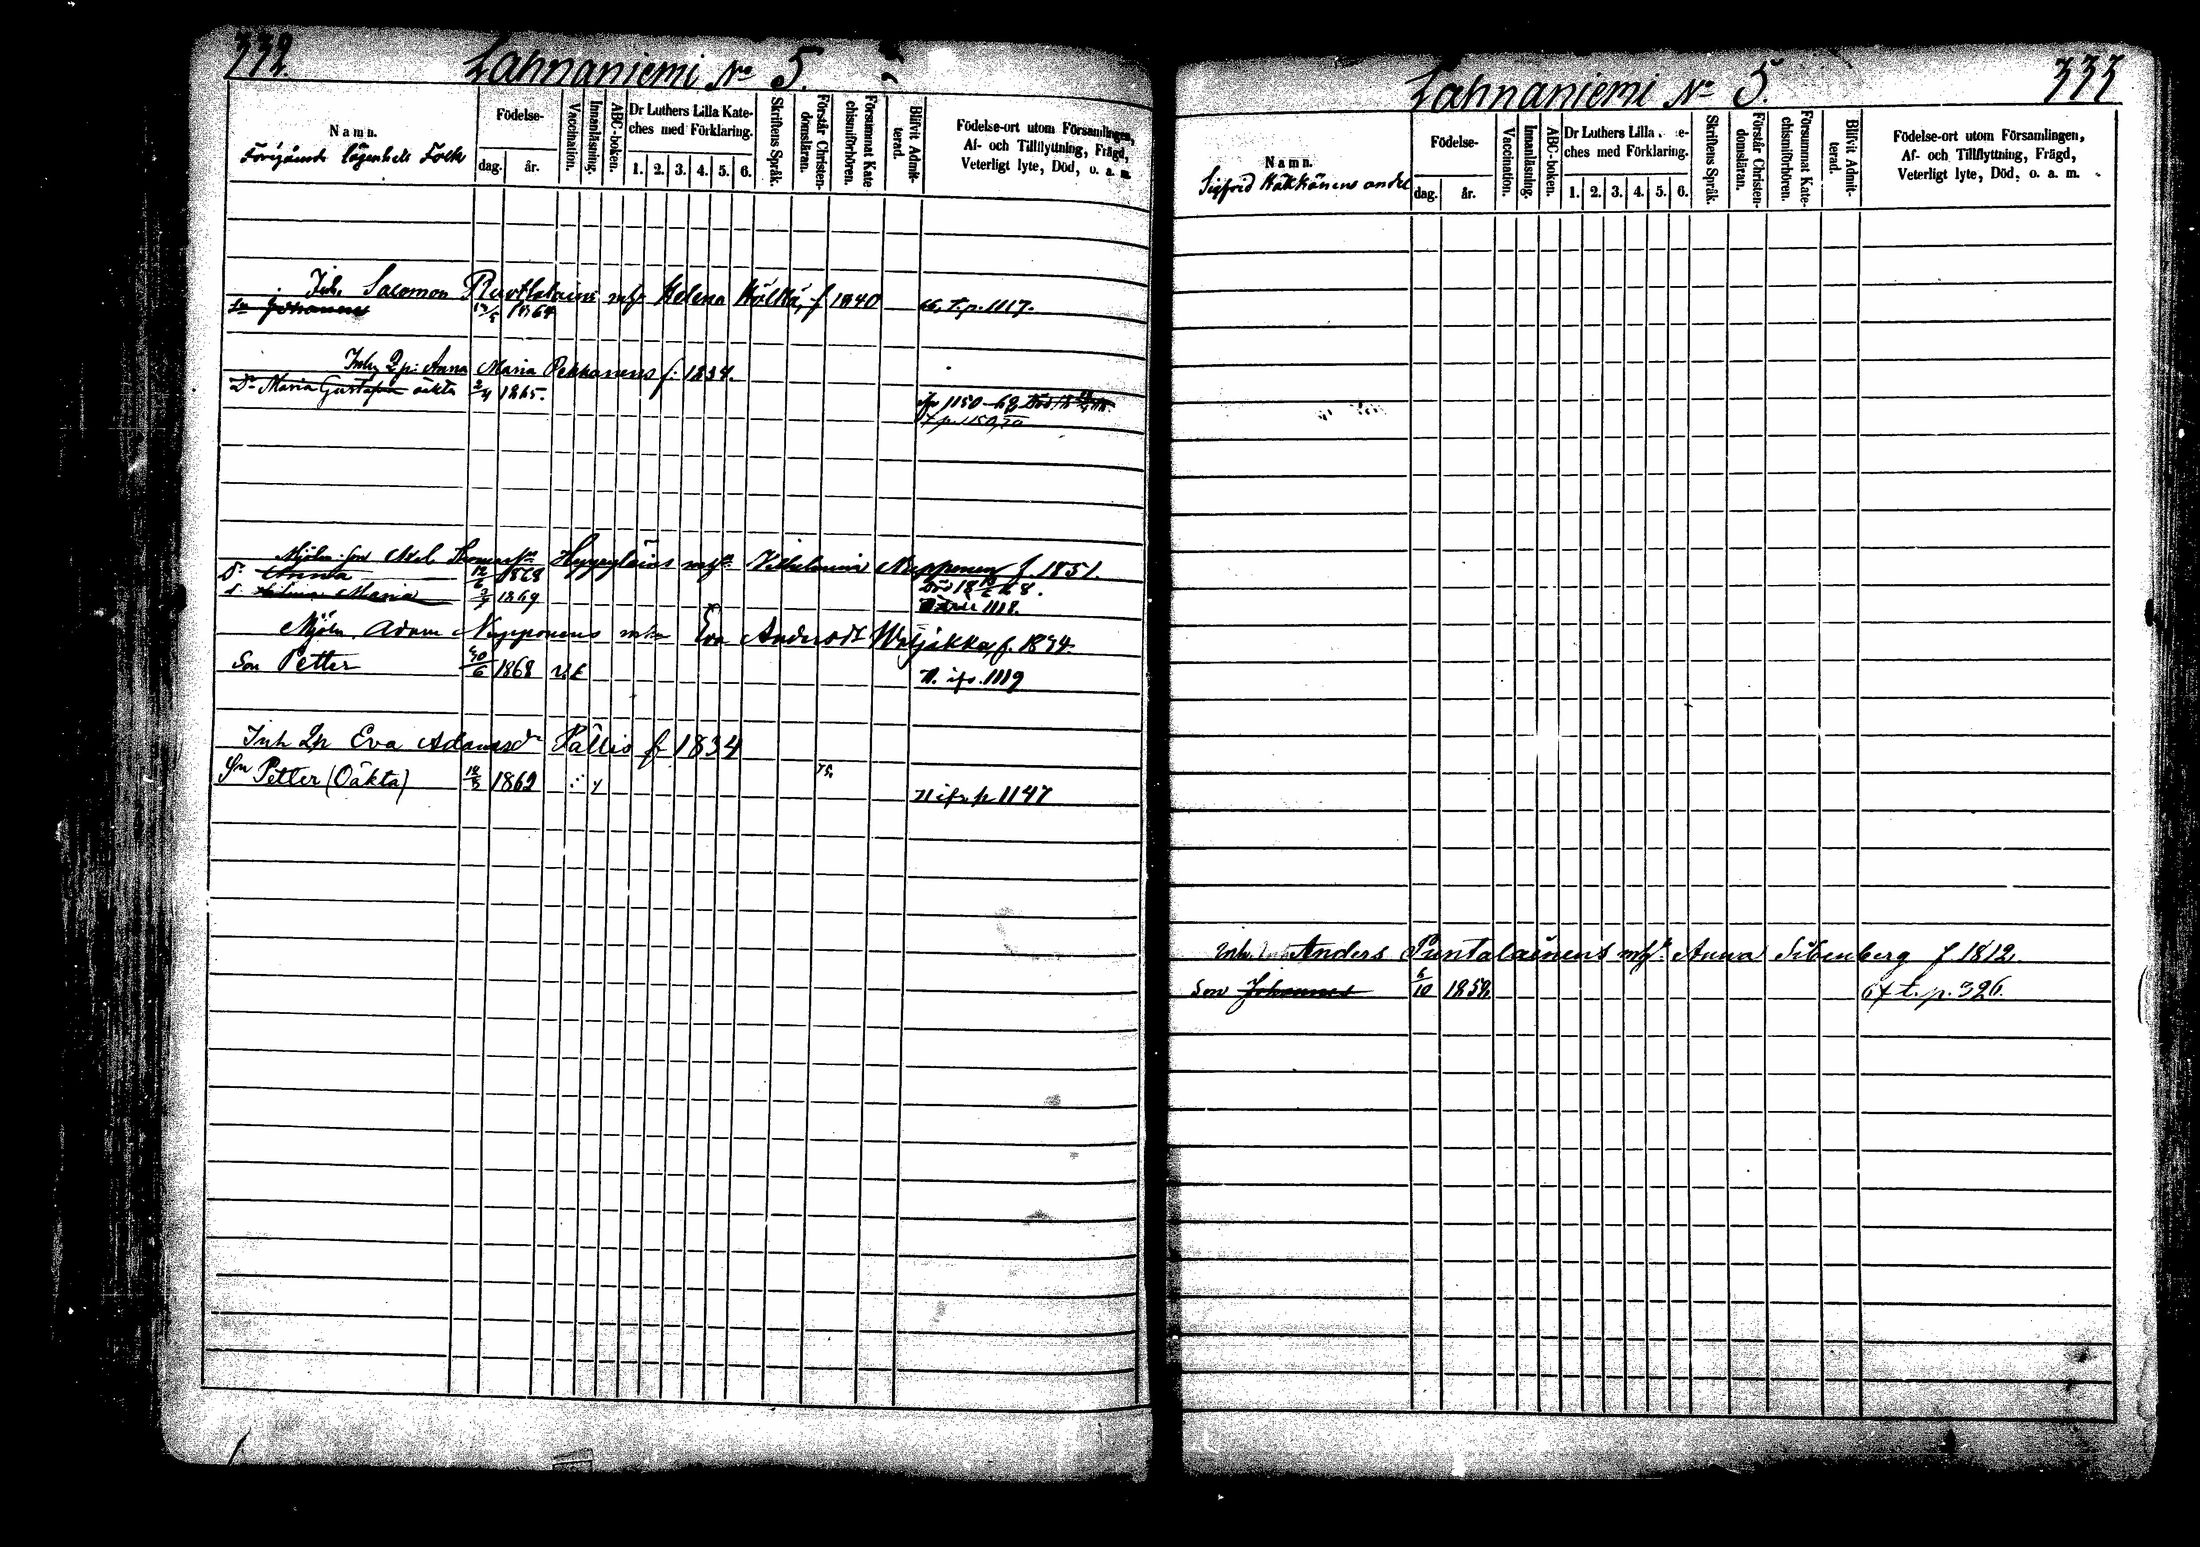 332.
Lahnaniemi No 5.
Namn.
lägenhets Folk
Födelse-
dag. år.
Vaccination.
Innanläsning.
ABC-boken.
Dr Luthers Lilla Kate-
ches med Förklaring.
1. 2. 3. 4. 5. 6.
Skriftens Språk.
Förstår Christen-
domsläran.
Försummat Kate
chismiförhören.
Blifvit Admit-
terad.
Födelse-ort utom Församlingen,
Af- och Tillflyttning, Frägd,
Veterligt lyte, Död, o. a. m.
Inh. Salomon mh Helena Kölkä, f 1840
Johannes 1864 66, T.p. 1117.
Inh. Qp: Anna Maria Pekkonens f: 1834.
Dr Maria Gustafva oäkta 2/4 1865.
1150
t p. 1150, 70
Axel Hyyryläins Vilhelmina Nupponen f. 1851.
Dr Anna 12/6 1868 Död 18 68.
Dr Maria 1869 1118.
Mjöln. Adam Nupponens Eva Andersdr Waljakka, f. 1844.
Son Petter 30/6 1868 p. 1119
Inh Qp Eva Adamsdr Pällis f 1834
Sn Petter (Oäkta) 1862 75. p 1147
333
Lahnaniemi No 5.
Namn.
Sigfrid Kokkonens andel
Födelse-
dag. år.
Vaccination.
Innanläsning.
ABC-boken.
Dr Luthers Lilla e-
ches med Förklaring.
1. 2. 3. 4. 5. 6.
Skriftens Språk.
Förstår Christen-
domsläran.
Försummat Kate-
chismiförhören.
Blifvit Admit-
terad.
Födelse-ort utom Församlingen,
Af- och Tillflyttning, Frägd,
Veterligt lyte, Död, o. a. m.
Inh. Anders Puntalainens Anna Silvenberg f 1812.
Son Johannes 6/10 1852 67 t. p. 326.